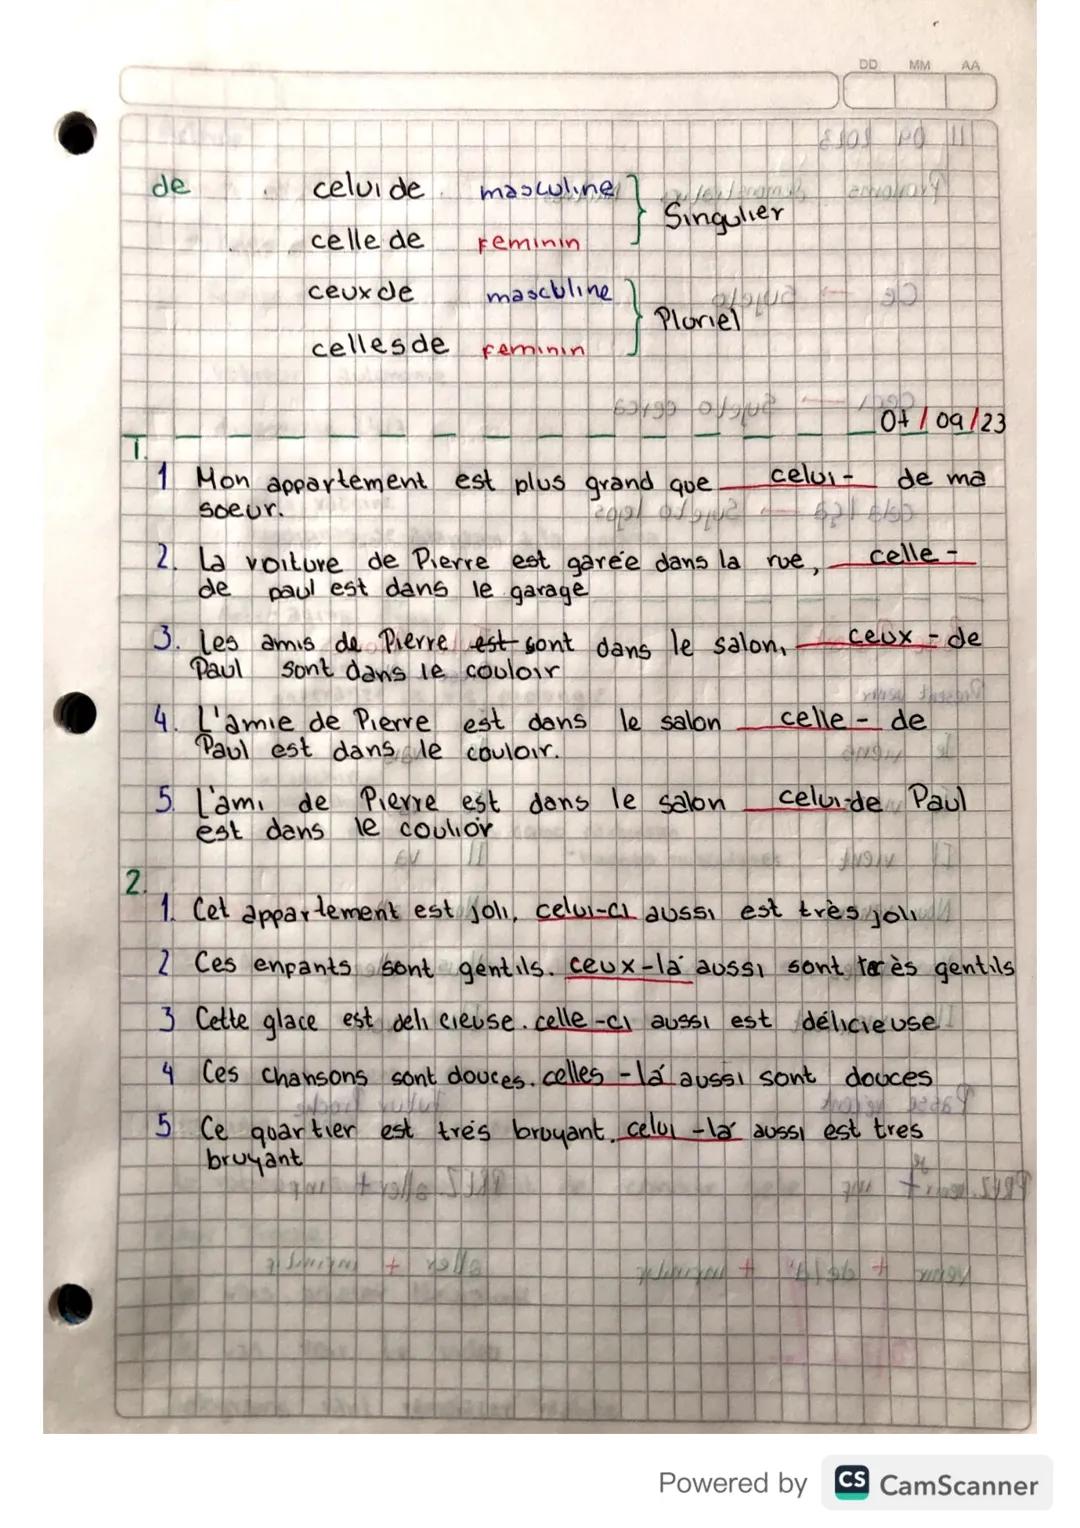 DD MM AA
de celui de masculine
Singulier
celle de feminin
ceux de masculine
Pluriel
celles de feminin
07/09/23
1.
1 Mon appartement est plus grand que celui- de ma
soeur.
2. La voiture de Pierre est garée dans la rue, celle-
de paul est dans le garage
3. Les amis de Pierre est sont dans le salon, ceux - de
Paul sont dans le couloir
4. L'amie de Pierre est dans le salon celle - de
Paul est dans le couloir.
5. L'ami de Pierre est dans le salon celui-de Paul
est dans le coulior
2.
1. Cet appartement est joli, celui-ci aussi est très joli
2 Ces enpants sont gentils. ceux-lá aussi sont très gentils
3 Cette glace est deli cieuse. celle-ci aussi est délicieuse
4 Ces chansons sont douces. celles -lá aussi sont douces
5 Ce quartier est trés bruyant. celui -lá aussi est tres
bruyant
Powered by CS CamScanner